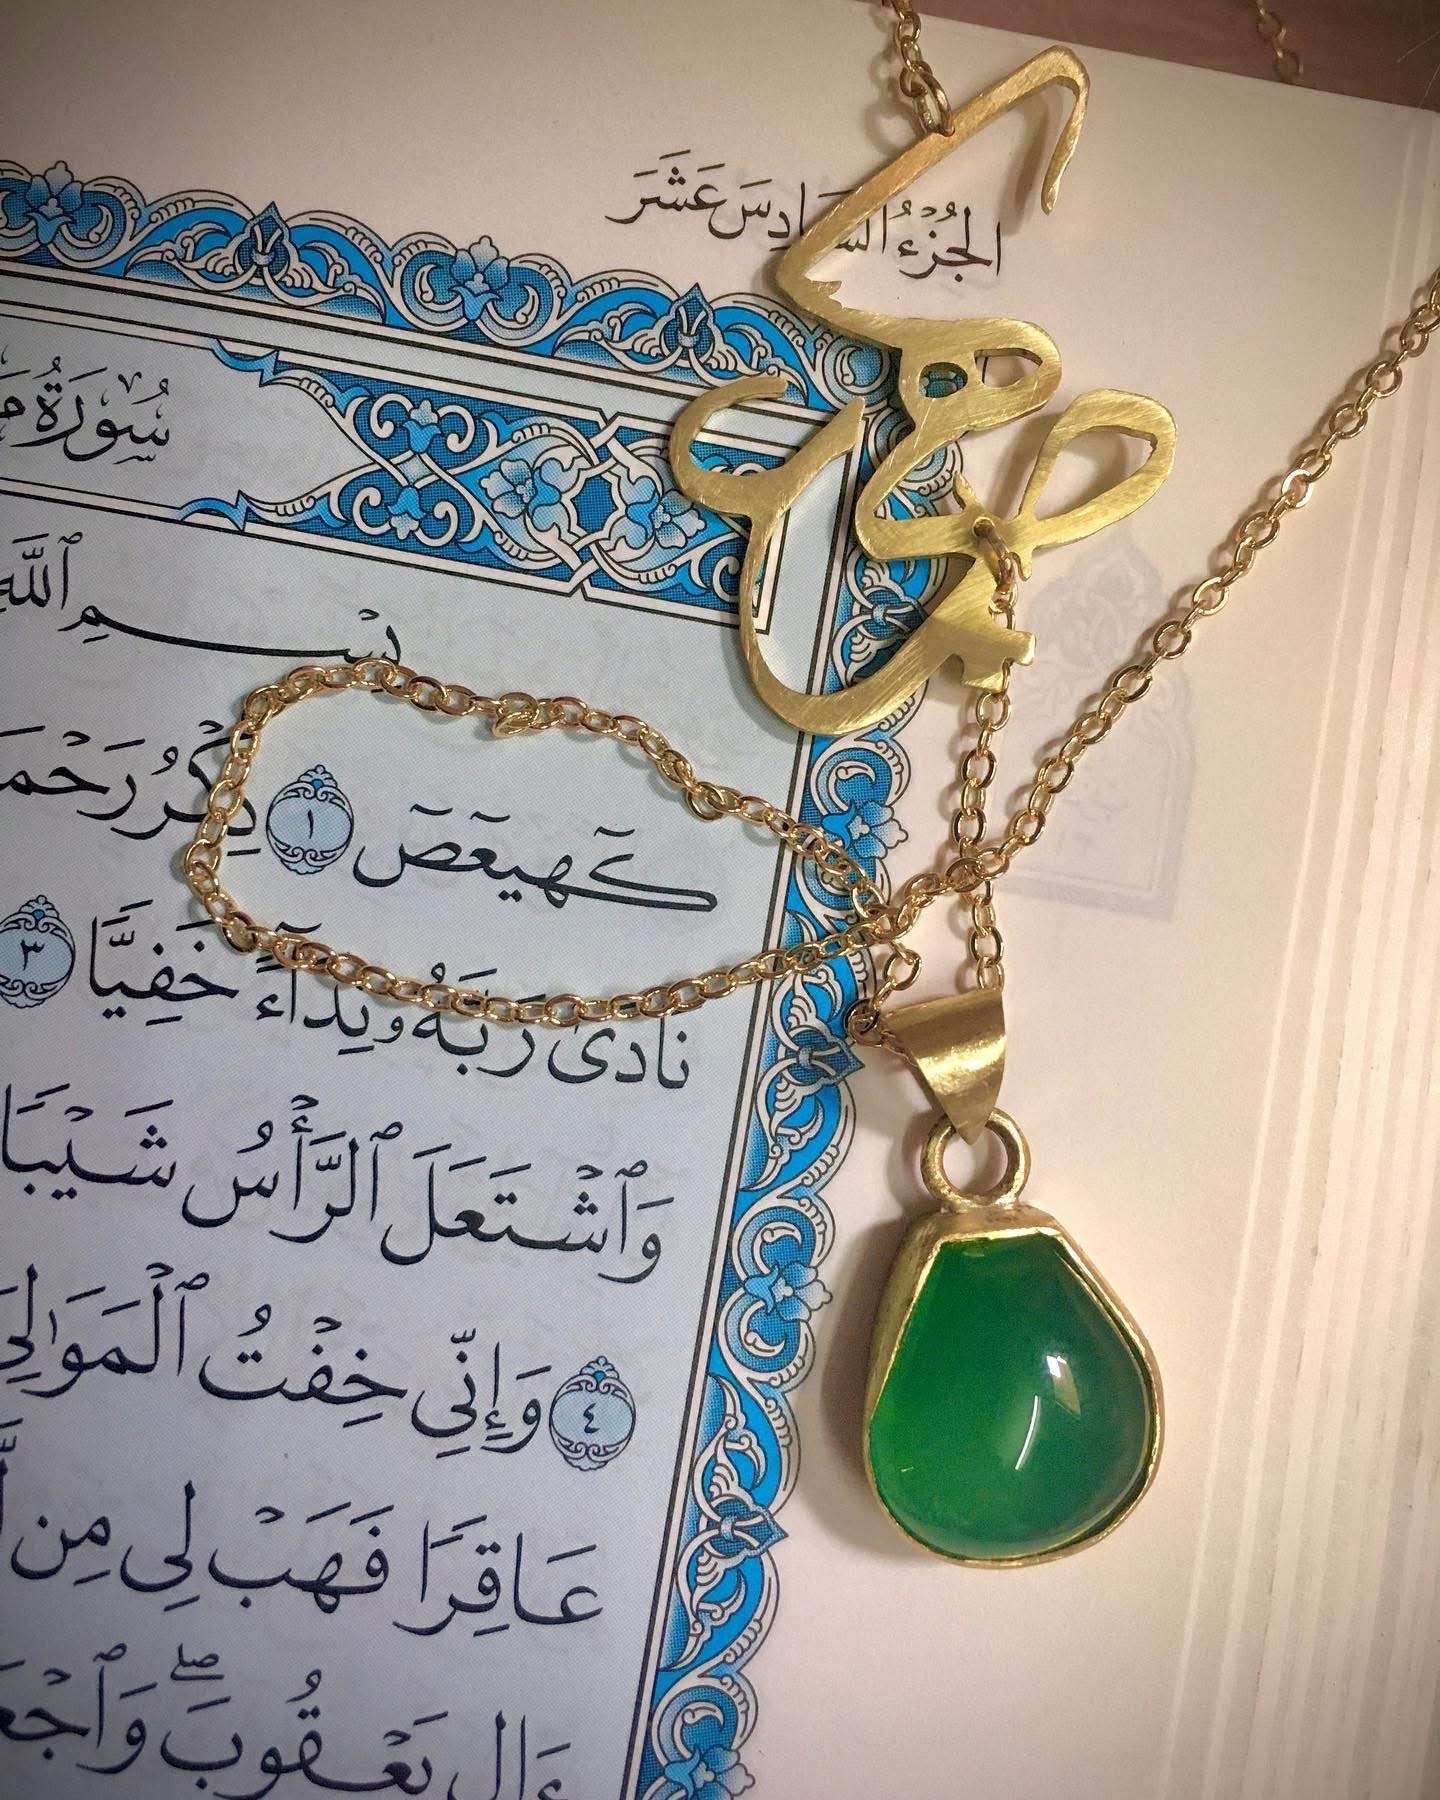 الجُزْءُ السَّادِسَ عَشَرَ
سُورَةُ
بِسْمِ ٱللَّهِ
كٓهيعٓصٓ ١ ذِكْرُ رَحْمَ
نَادَىٰ رَبَّهُۥ نِدَآءً خَفِيًّا ٣
وَٱشْتَعَلَ ٱلرَّأْسُ شَيْبًا
٤ وَإِنِّي خِفْتُ ٱلْمَوَٰلِيَ
عَاقِرًا فَهَبْ لِي مِن
ءَالِ يَعْقُوبَۖ وَٱجْعَ
كهيعص